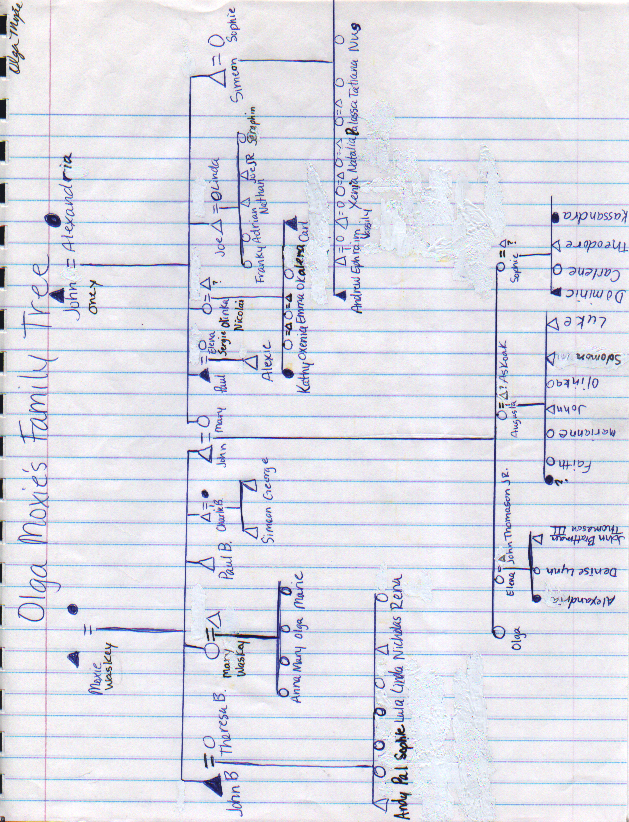 Olga Moxie
Olga Moxie's Family Tree
Moxie
Waskey
John = Alexandria
Oney
John B
Theresa B.
Mary
Waskey
Paul B.
Charlie B.
John
Mary
Paul
Elena
Sergie
Olinka
Nicolai
Joe
Linda
Simeon
Sophie
Andy Pal Sophie Lula Linda Nicholas Rena
Anna Mary Olga Marie
Simeon George
Alexie
Kathy Oxenia Emma Okalena Carl
Franky Adrian Nathan Joe JR Seraphin
Andrew Ephraim Vassily Xenia Natalia Palassa Tatiana Nus
Olga
Elena
John Thomason JR.
Augusta
? Askoak
Sophie
?
Alexandria
Denise Lynn
John Brattman
Thomason III
?
Faith
Marianne
John
Olinka
Solomon
Luke
Dominic
Carlene
Theodore
Kassandra